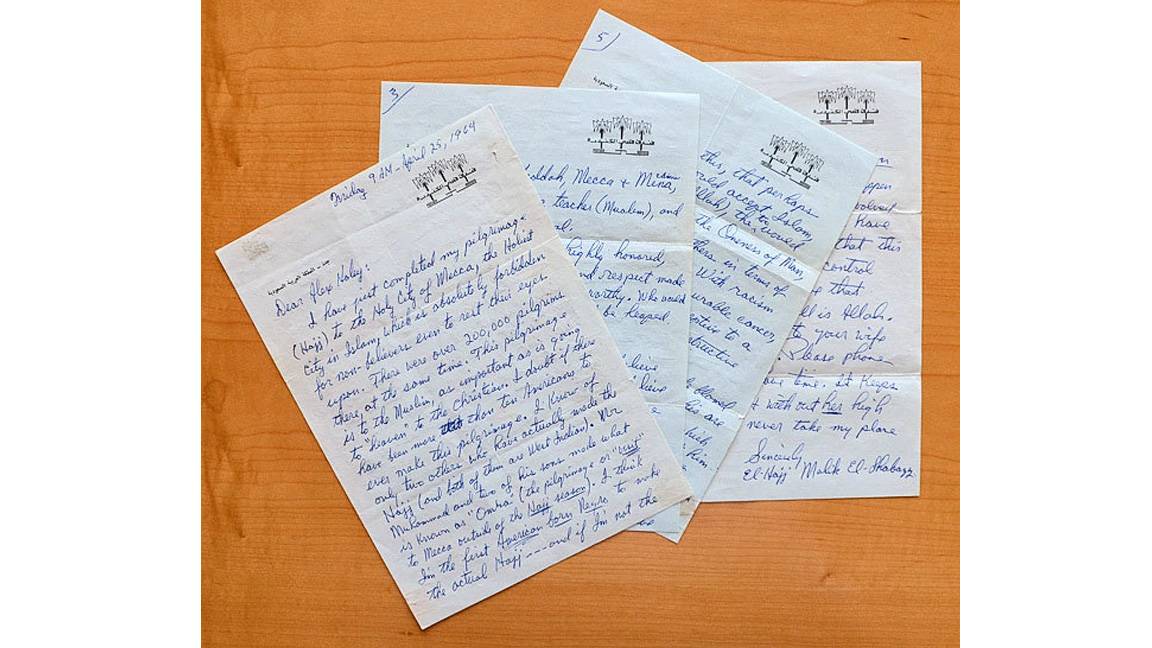 Friday 9 AM - April 25, 1964
Dear Alex Haley:
I have just completed my pilgrimage
(Hajj) to the Holy City of Mecca, the Holiest
City in Islam, which is absolutely forbidden
for non-believers even to rest their eyes
upon. There were over 200,000 pilgrims
there, at the same time. This pilgrimage
is to the Muslim, as important as is going
to "heaven" to the Christian. I doubt if there
have been more than ten Americans to
ever make this pilgrimage. I know of
only two others who have actually made the
Hajj (and both of them are West Indian). Mr.
Muhammad and two of his sons made what
is known as "Omra" (the pilgrimage or "visit"
to Mecca outside of the Hajj season). I think
I'm the first American born Negro to make
the actual Hajj --- and if I'm not the
3
Jeddah, Mecca + Mina,
teacher (Mualem), and
highly honored,
and respect made
worthy. Who would
be heaped
believe
5
this, that perhaps
would accept Islam,
(Allah), they would
the Oneness of Man,
in terms of
With racism
cancer,
to a
blamed
are
him
happen
involved
have
that this
control
that
all is Allah.
to your wife
Please phone
time. It keeps
without her high
never take my place
Sincerely
El-Hajj Malik El-Shabazz